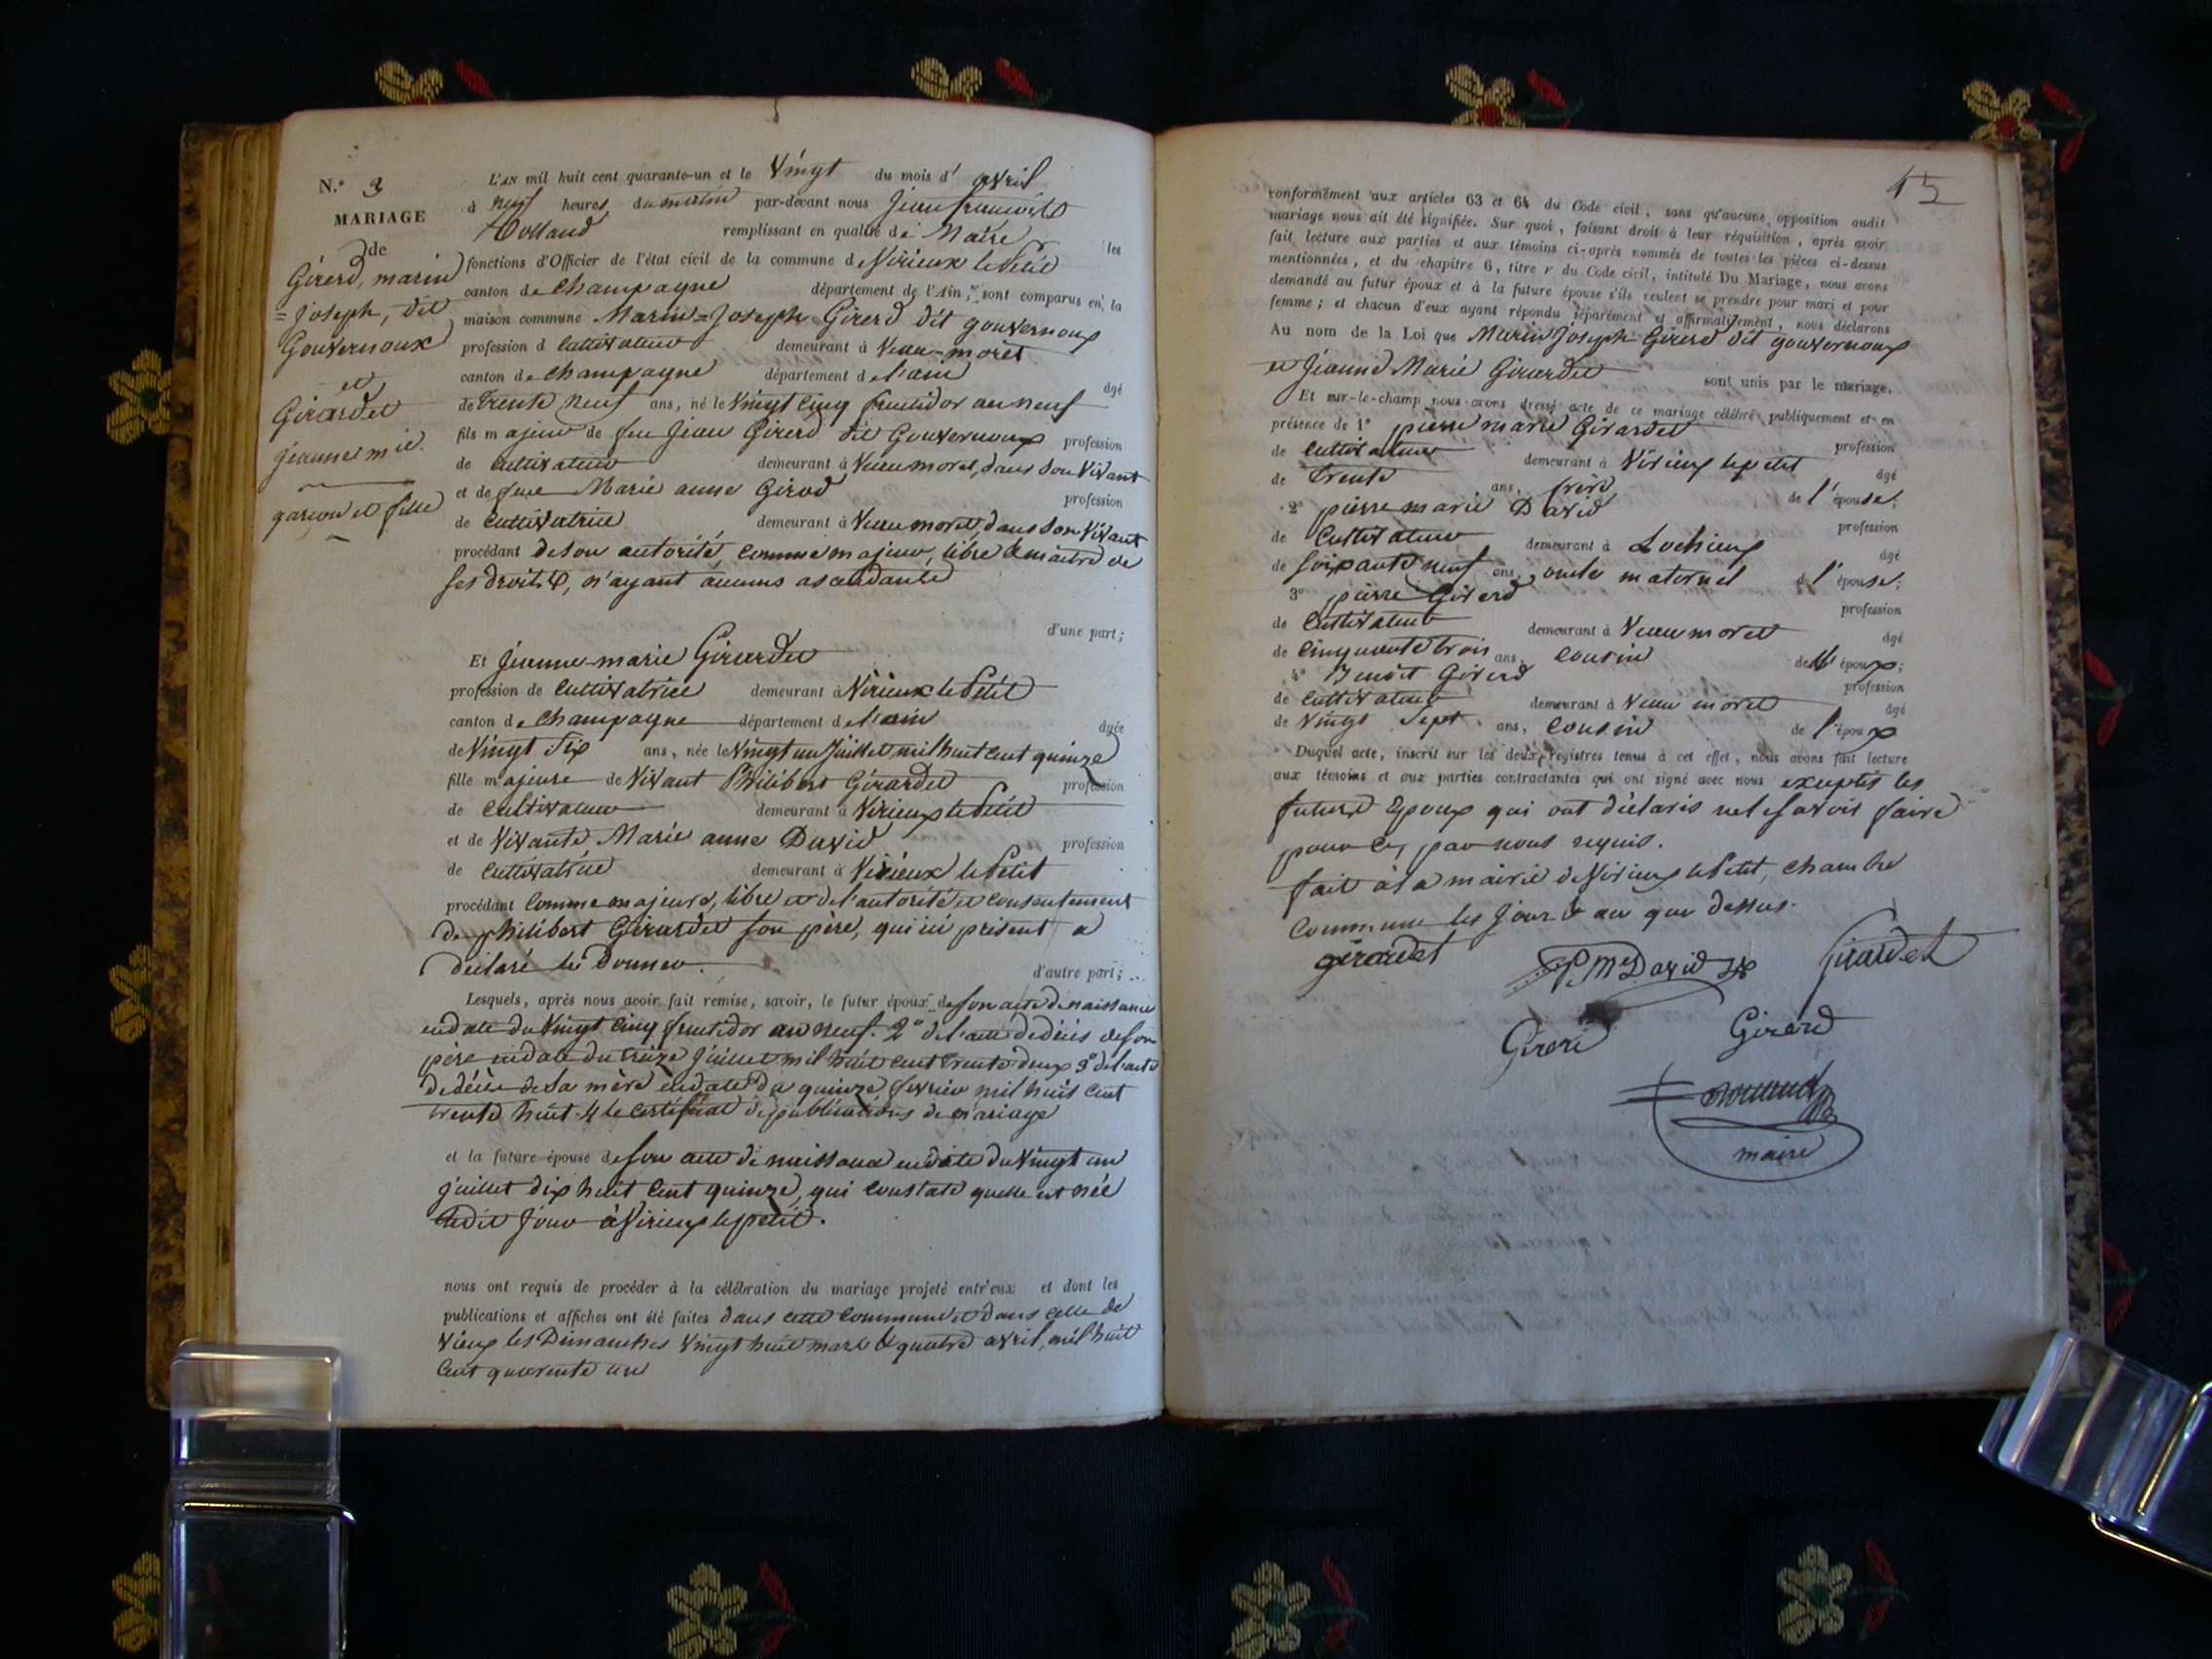 N.° 3
MARIAGE
de
Girerd, marin
= joseph, dit
Gouvernoux
et
Girardet
jeanne m ie.
garçon et fille
L'AN mil huit cent quarante-un et le Vingt du mois d' avril
à neuf heures du matin par-devant nous Jean françois
remplissant en qualité de Maire les
fonctions d'Officier de l'état civil de la commune de Virieux le Petit
canton de Champagne département de l'Ain, sont comparus en la
maison commune Marin=Joseph Girerd dit gouvernoux
profession d cultivateur demeurant à Vaux-moret
canton de Champagne département de l'ain âgé
de Trente neuf ans, né le Vingt cinq fructidor an neuf
fils majeur de feu Jean Girerd dit Gouvernoux profession
de cultivateur demeurant à moret, dans son Vivant
et de feue Marie anne Girod profession
de cultivatrice demeurant à moret, dans son Vivant
procédant de son autorité, comme majeur, libre & maitre de
ses droits &, n'ayant aucuns ascendants
d'une part;
Et Jeanne-marie Girardet
profession de cultivatrice demeurant à Virieux le Petit
canton de Champagne département de l'ain âgée
de Vingt Six ans, née le Vingt un Juillet mil huit cent quinze
fille majeure de Vivant Philibert Girardet profession
de cultivateur demeurant à Virieux le Petit
et de Vivante, Marie anne David profession
de cultivatrice demeurant à Virieux le Petit
procédant comme majeure, libre et de l'autorité et consentement
de philibert Girardet son père, qui ici présent a
déclaré lui Donner. d'autre part;
Lesquels, après nous avoir fait remise, savoir, le futur époux de son acte de naissance
en date du Vingt cinq fructidor an neuf. 2° de l'acte de décès de son
père en date du treize Juillet mil huit cent trente deux 3° de l'acte
de décès de sa mère en date du quinze fevrier mil huit cent
trente huit. 4 le certificat des publications de mariage
et la future épouse de son acte de naissance en date du Vingt un
juillet dix huit cent quinze, qui constate quelle est née
ledit jour à Virieux le petit.
nous ont requis de procéder à la célébration du mariage projeté entr'eux et dont les
publications et affiches ont été faites dans cette commune et dans celle de
Vieux les Dimanches Vingt huit mars & quatre avril, mil huit
cent quarante un
15
conformément aux articles 63 et 64 du Code civil, sans qu'aucune opposition audit
mariage nous ait été signifiée. Sur quoi, faisant droit à leur réquisition, après avoir
fait lecture aux parties et aux témoins ci-après nommés de toutes les pièces ci-dessus
mentionnées, et du chapitre 6, titre v du Code civil, intitulé Du Mariage, nous avons
demandé au futur époux et à la future épouse s'ils veulent se prendre pour mari et pour
femme; et chacun d'eux ayant répondu séparément et affirmativement, nous déclarons
Au nom de la Loi que Marin Joseph Girerd dit gouvernoux
et Jeanne Marie Girardet sont unis par le mariage.
Et sur-le-champ nous avons dressé acte de ce mariage célébré publiquement et en
présence de 1° pierre marie Girardet profession
de cultivateur demeurant à Virieux le petit âgé
de trente ans, frère de l'épouse;
2° pierre marie David profession
de Cultivateur demeurant à Lochieux âgé
de soixante neuf ans, oncle maternel de l'épouse;
3° pierre Girerd profession
de Cultivateur demeurant à moret âgé
de cinquante trois ans, cousin de l'époux;
4° Benoit Girerd profession
de cultivateur demeurant à moret âgé
de Vingt Sept ans, cousin de l'époux
Duquel acte, inscrit sur les deux registres tenus à cet effet, nous avons fait lecture
aux témoins et aux parties contractantes qui ont signé avec nous exceptés les
futurs Epoux qui ont déclarés ne le savoir faire
pour ce, par nous requis.
fait à la mairie de Virieux le Petit, chambre
commune les jour & an que dessus.
girardet P. Me David Girardet
Girerd Girerd
maire